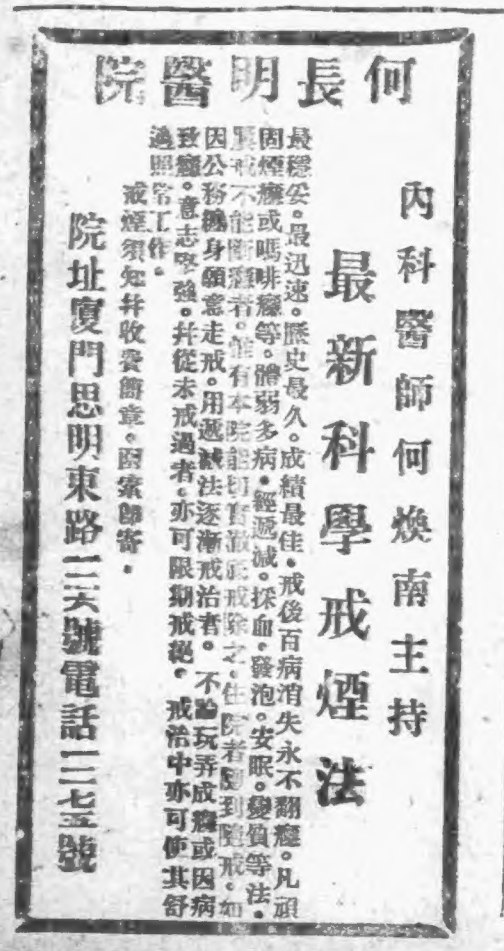 何長明醫院
內科醫師何煥南主持
最新科學戒煙法
最穩妥。最迅速。歷史最久。成績最佳。戒後百病消失永不翻癮。凡頑
固煙癮或嗎啡癮等。體弱多病。經遞減。採血。發泡。安眠。變質等法。
屢戒不能斷癮者。惟有本院能切實澈底戒除之。住院者隨到隨戒。如
因公務纏身願意走戒。用遞減法逐漸戒治者。不論玩弄成癮或因病
致癮。意志堅強。幷從未戒過者。亦可限期戒絕。戒治中亦可使其舒
適照常工作。
戒煙須知幷收費簡章。函索即寄。
院址廈門思明東路一二六號電話一二七五號